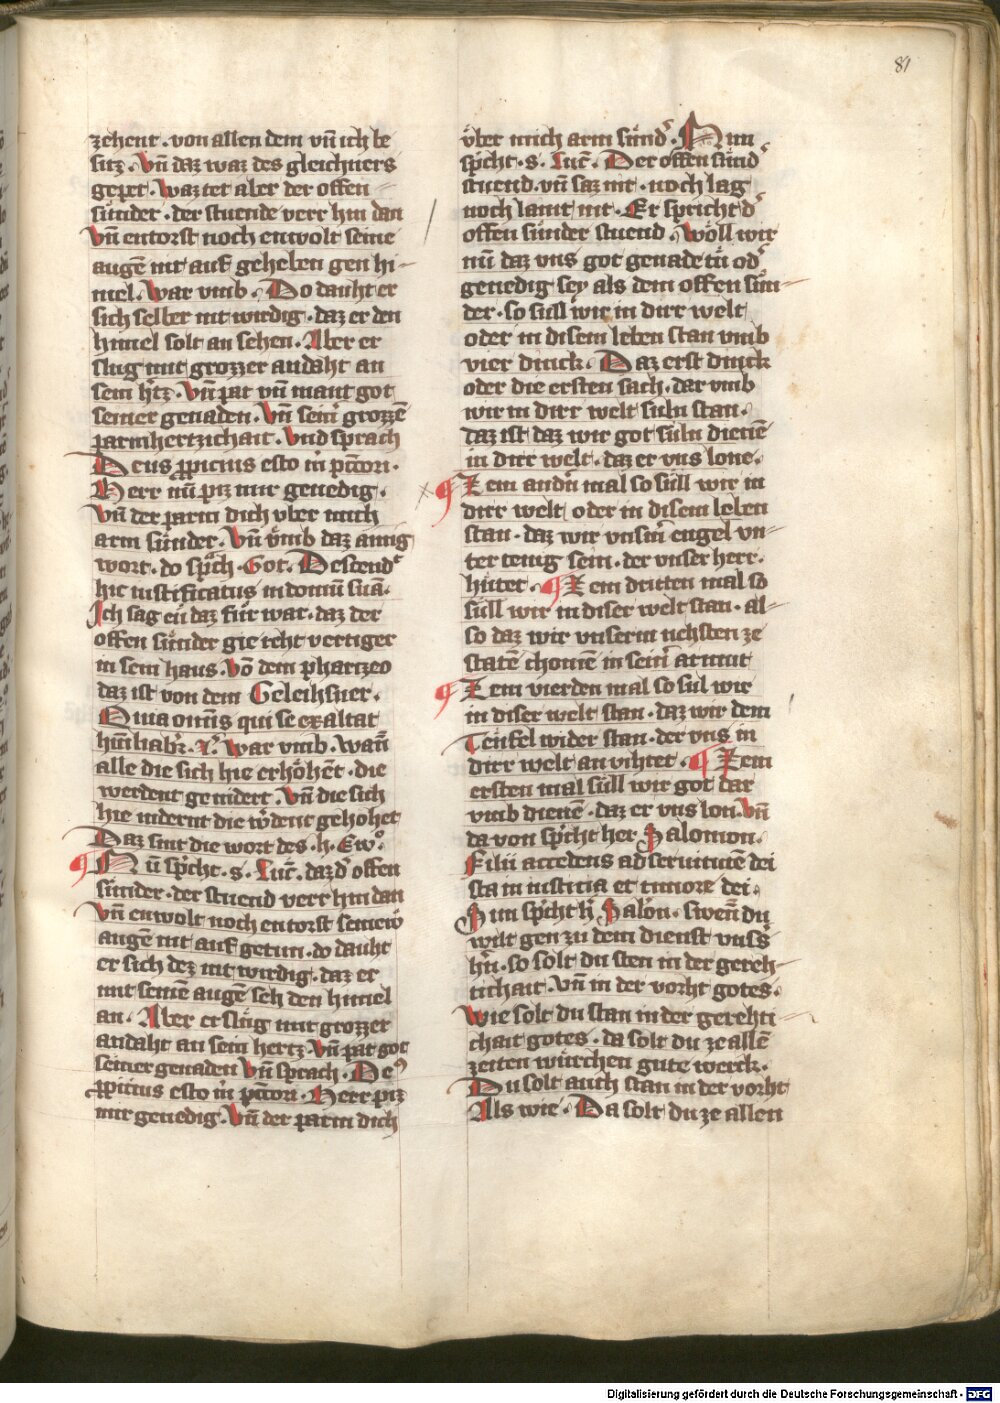 81
zehent · von allen dem vn̄ ich be
sitz · Vn̄ daz waz des gleichners
gepet · Waz tet aber der offen
sünder · der stuende verr hin dan
Vn̄ entorst noch enwolt seine
augē nit auf geheben gen hi-
mel · War vmb · Do dauht er
sich selber nit wirdig · daz er den
himel solt an sehen · Aber er
slug mit grozzer andaht an
sein h̄tz · Vn̄ pat vn̄ mant got
seiner genaden · Vn̄ sein̄ grozzē
parmhertzichait · Vnd sprach
Deus ꝓpicius esto m̄ pc̄tori ·
Herr nū piz mir genedig ·
vn̄ der parm dich vber mich
arm sünder · Vn̄ vmb daz ainig
wort · do sp̄ch · Got · Descend̾
hic iustificatus in domū suā ·
Ich sag eu daz für war · daz der
offen sünder gie reht vertiger
in sein haus · Vō dem phariz̄eo
daz ist von dem Geleihsner ·
Quia omīs qui se exaltat
hūiliab̾r · Γ̾ · War vmb · Wan̄
alle die sich hie erhöhēt · die
werdent genidert · Vn̄ die sich
hie nidernt die w̾dent gehöhet
Daz sint die wort des · h · Ew̾ ·
¶ Nū sp̄cht · s · Luc̄ · daz d̾ offen
sünder · der stuend verr hin dan
vn̄ enwolt noch entorst seinew
augē nit auf getun · do dauht
er sich dez nit wirdig · daz er
mit seinē augē seh den himel
an · Aber er slug mit grozzer
andaht an sein hertz · Vn̄ pat got
seiner genaden Vn̄ sprach · De⁹
ꝓpicius esto m̄ pc̄tori · Herr piz
mir genedig · Vn̄ der parm dich
über mich arm sünd̾ · Nun
sp̄cht · s · Luc̄ · Der offen sünd̾
stuend · vn̄ saz nit · noch lag
noch laint nit · Er spricht d̾
offen sünder stuend · Wöll wir
nū daz vns got genade tü od̾
genedig sey als dem offen sün-
der · so süll wir in dirr welt
oder in disem leben stan vmb
vier dinck · Daz erst dinck
oder die ersten sach · dar vmb
wir in dirr welt süln stan ·
daz ist daz wir got süln dienē
in dirr welt · daz er vns lone ·
¶ Zem andn̄ mal so süll wir in
dirr welt oder in disem leben
stan · daz wir vnsm̄ engel vn-
ter tenig sein · der vnser herr ·
hütet · ¶ Zem dritten mal so
süll wir in diser welt stan · al-
so daz wir vnserm nehsten ze
statē chomē in sein̄ armut
¶ Zem vierden mal so sül wir
in diser welt stan · daz wir dem
Teufel wider stan · der vns in
dirr welt an vihtet · ¶ Zem
ersten mal süll wir got dar
vmb dienē · daz er vns lon · Vn̄
da von sp̄cht her Salomon ·
Filii accedens ad seruitutē dei
sta in iusticia et timore dei ·
Nun sp̄cht h̾ Salōn · swen̄ du
wilt gen zu dem dienst vns̾s
h̾n · so solt du sten in der gereh-
tichait · Vn̄ in der vorht gotes ·
Wie solt du stan in der gerehti-
chait gotes · da solt du ze allē
zeiten würchen gute werck ·
Du solt auch stan in der vorht
Als wie · Da solt du ze allen
Digitalisierung gefördert durch die Deutsche Forschungsgemeinschaft - DFG